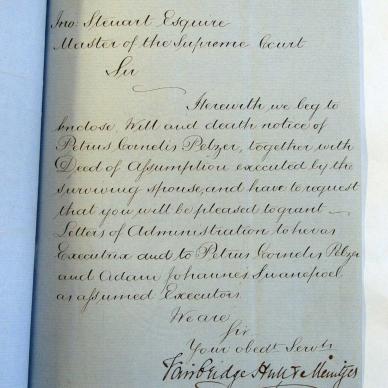 Jno: Steuart Esquire
Master of the Supreme Court
Sir
Herewith we beg to
enclose Will and death notice of
Petrus Cornelis Pelzer, together with
Deed of Assumption executed by the
surviving spouse, and have to request
that you will be pleased to grant
Letters of Administration to her as
Executrix and to Petrus Cornelis Pelzer
and Adam Johannes Swanepoel
as assumed Executors
We are
Sir
Your obedt Servts
Fairbridge Hull & Meintjes